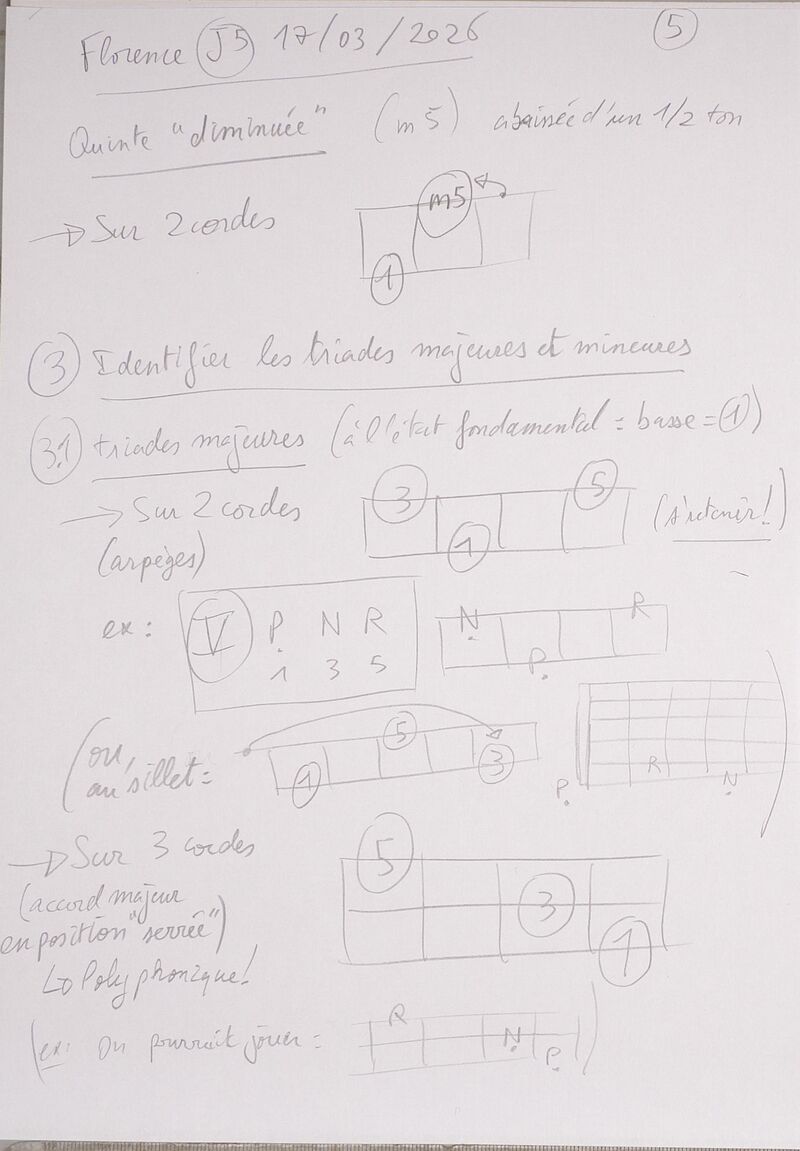 Florence J5 17/03/2026 5
Quinte "diminuée" (m5) abaissée d'un 1/2 ton
→ Sur 2 cordes
m5
1
3 Identifier les triades majeures et mineures
3.1 triades majeures (à l'état fondamental = basse = 1)
→ Sur 2 cordes
(arpèges)
3 5
1
(à retenir!)
ex:
V P. N R
1 3 5
N. R
P.
(ou, au sillet =
1 5 3
P. R N.)
→ Sur 3 cordes
(accord majeur
en position "serrée")
↳ Polyphonique!
5
3
1
(ex: On pourrait jouer =
R
N.
P.)